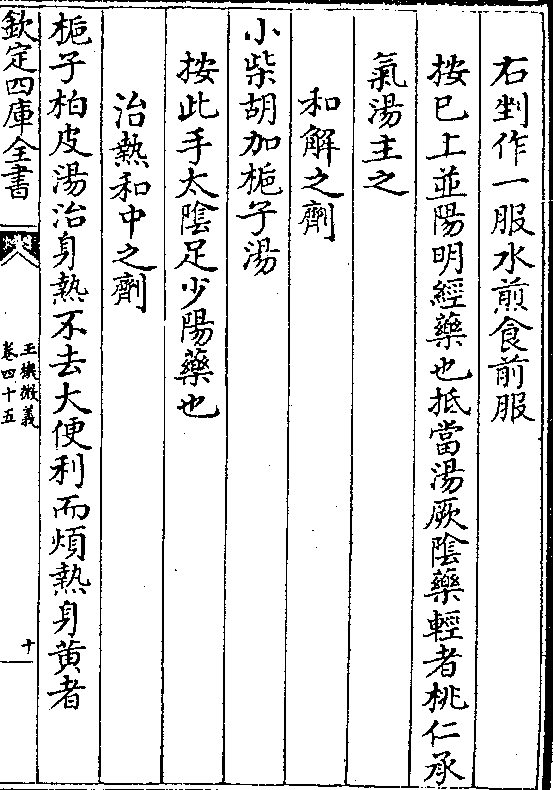 右剉作一服水煎食前服
按已上並陽明經藥也抵當湯厥陰藥輕者桃仁承
氣湯主之
和解之劑
小柴胡加梔子湯
按此手太陰足少陽藥也
治熱和中之劑
梔子柏皮湯治身熱不去大便利而煩熱身黃者
欽定四庫全書
玉機微義
卷四十五
十